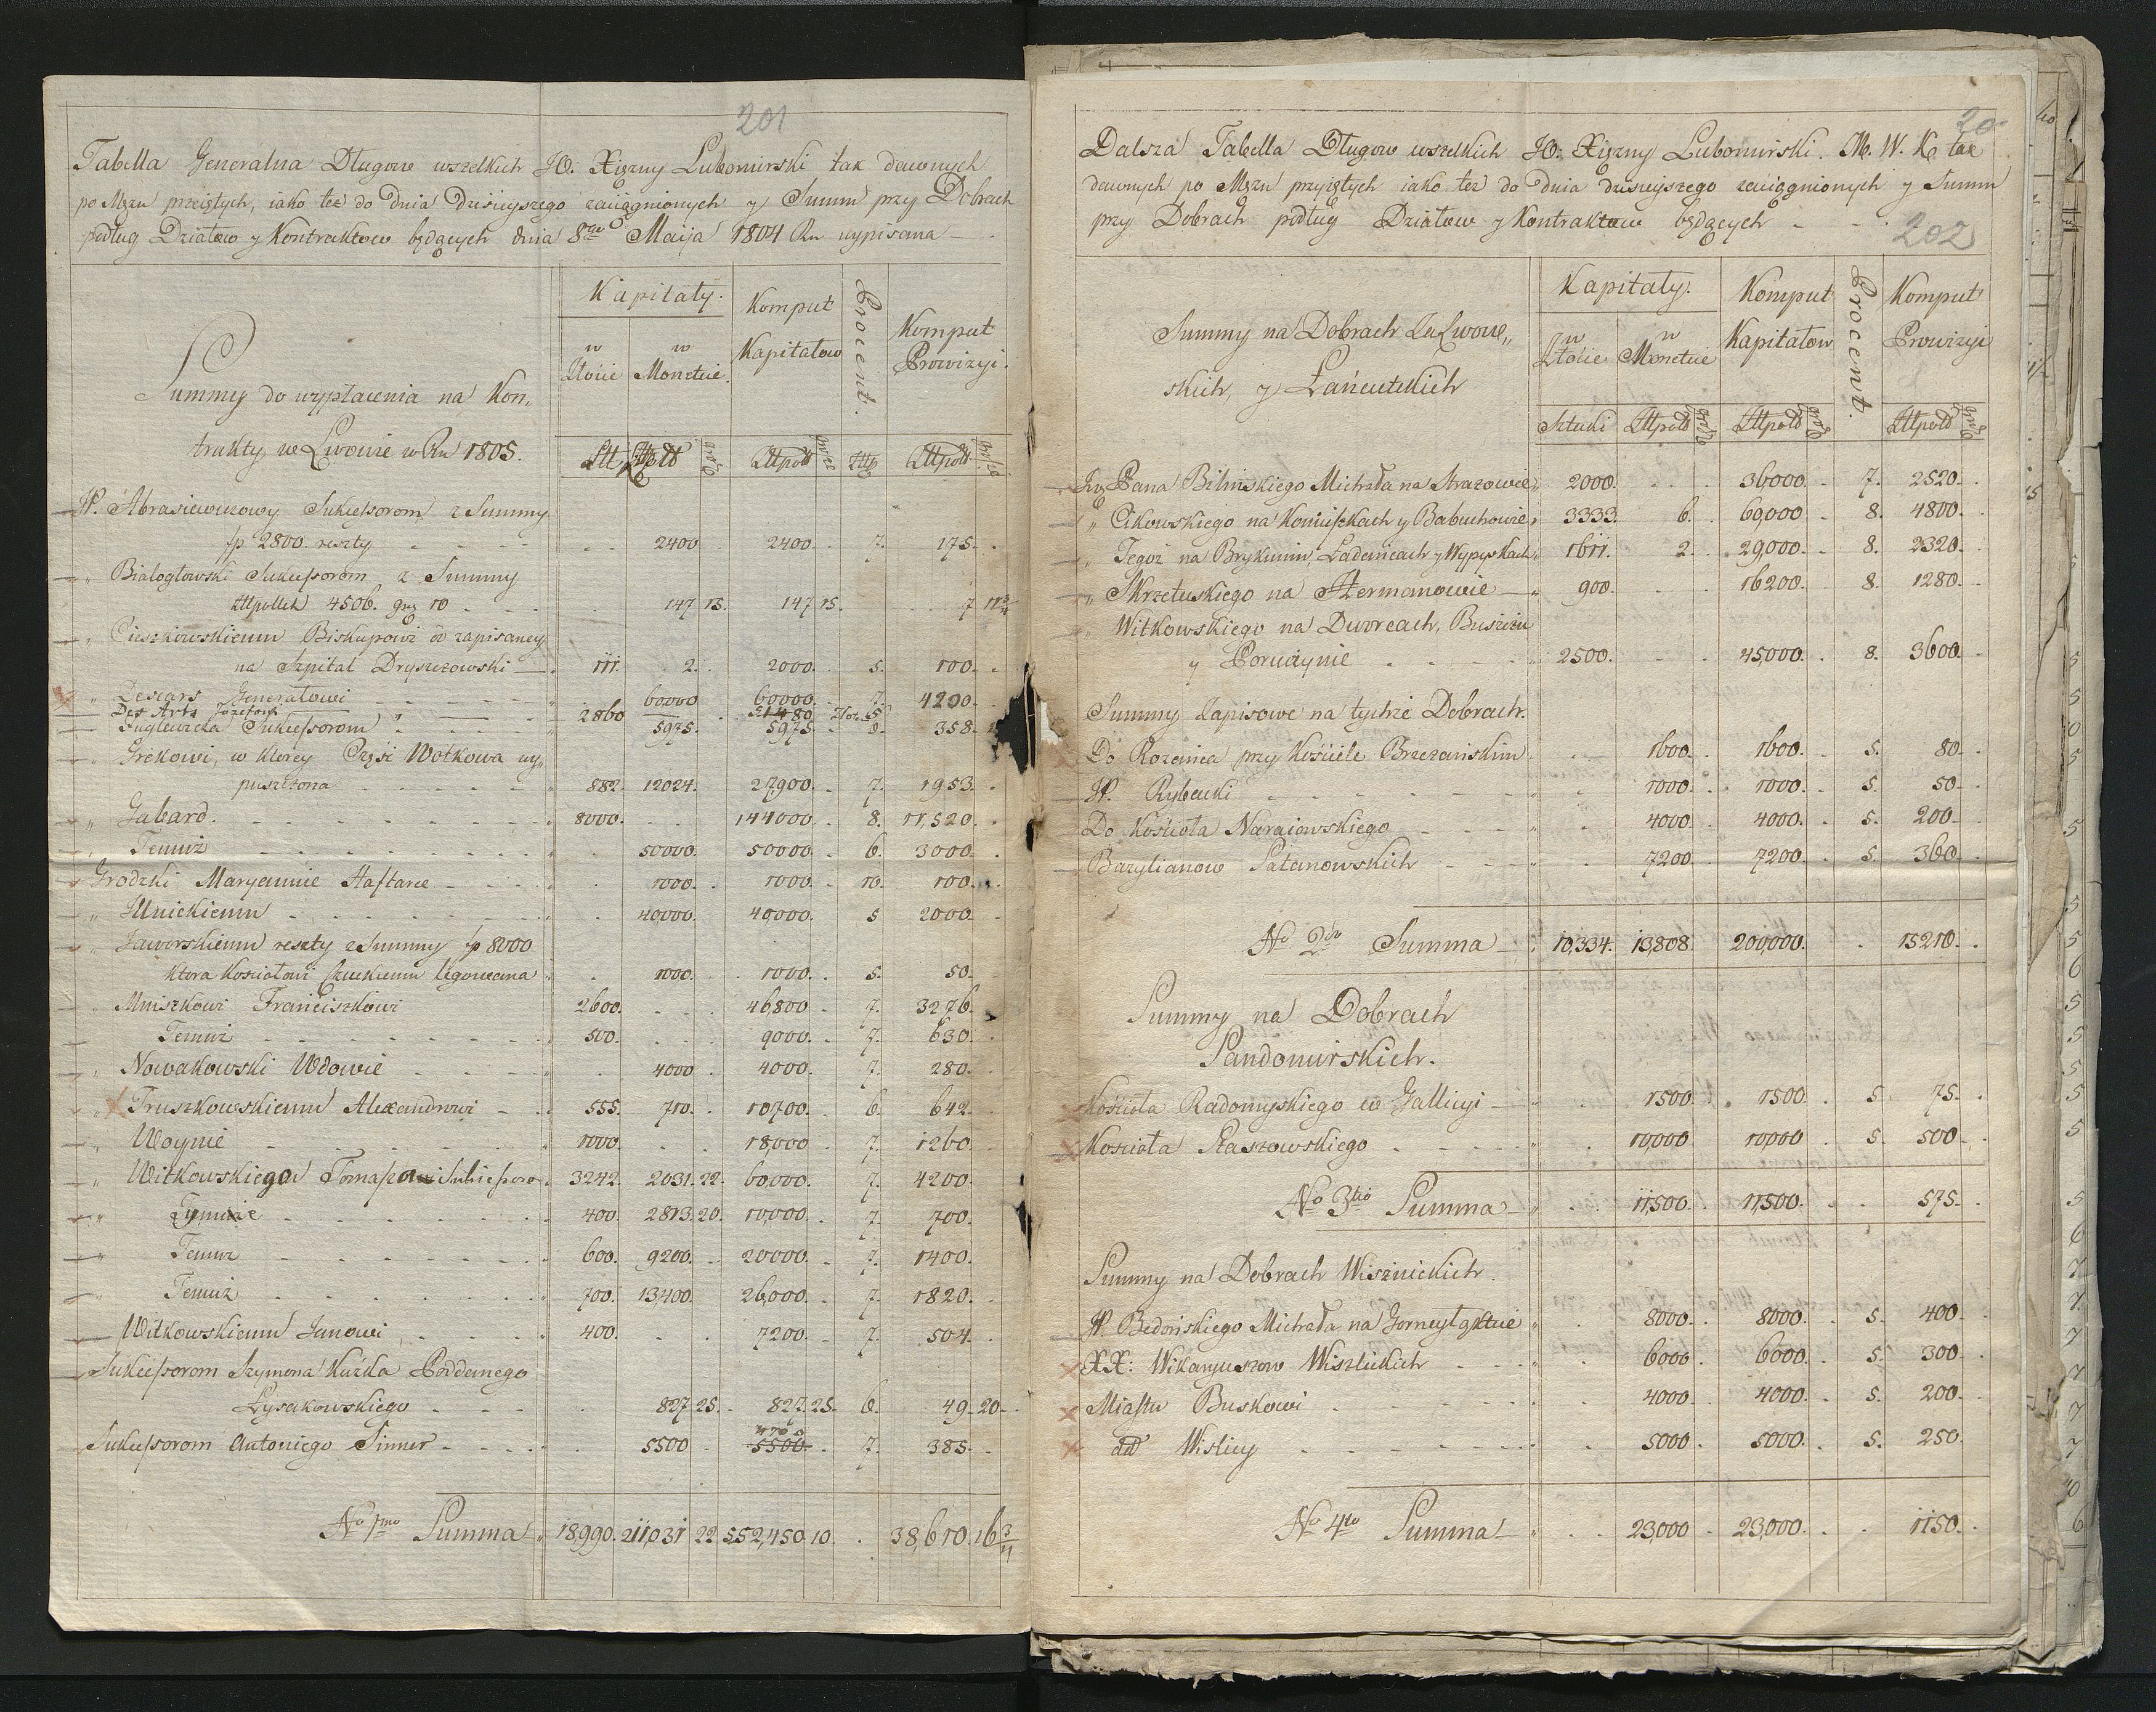 201
Tabella Generalna Długow wszelkich JO: Xiężny Lubomirski tak dawnych
po Mężu przeiętych, iako też do dnia dzisieyszego zaciągnionych y Summ przy Dobrach
podług Działow y Kontraktow będących dnia 8go Maija 1804 Ru wypisana —
Summy do wypłacenia na Kon„
trakty we Lwowie w Ru 1805.
Kapitały.
w Złocie
w Monecie
Komput Kapitałow
Procent.
Komput Prowizyi.
W. Abrasiewiczowy Sukcessorom z Summy
fp 2800. reszty 2400 2400. 7. 175.
„ Białogłowski Sukcessorom z Summy
Złłpollch 4506. grz 10 147 15. 147 15. 7 11 3/4
„ Cieszkowskiemu Biskupowi zapisaney
na Szpital Dryszczowski 111. 2. 2000. 5. 100.
„ Descars Generałowi 60000 60000. 7. 4200
Des Arts Jozefowi 2860 51480 5
Sukcessorom 5975. 5975. 8. 358.
„ Grekowi, w ktorey Częsc Wołkowa wy„
puszczona 882. 12024. 27,900. 7. 1953.
„ Gabard. 8000. 144000. 8. 11,520.
„ Temuż 50000. 50000. 6. 3000.
Grodzki Maryannie Haftarce 1000. 1000. 10. 100.
„ Ilnickiemu 40000. 40,000. 5 2000.
„ Jaworskiemu reszty z Summy fp 8000
ktora Kosciołowi legowana 1000. 1000. 5. 50.
„ Mniszkowi Franciszkowi 2600. 46,800 7. 3276.
Temuż 500. 9000. 7. 630.
„ Nowakowski Wdowie 4000 4000. 7. 280.
„ Truszkowskiemu Alexandrowi 555. 710. 10,700. 6. 642.
„ Woynie 1000. 18,000 7. 1260.
„ Witkowskiego Tomasza Sukcessoro 3242. 2031. 22. 60,000. 7. 4200.
„ Tymże 400. 2813. 20. 10,000. 7. 700.
„ Temuż 600. 9200. 20000. 7. 1400.
„ Temuż 700. 13,400. 26,000. 7. 1820.
Witkowskiemu Janowi 400. 7200. 7. 504.
Sukcessorom Szymona Kuźka Poddanego
Łysakowskiego 827 25. 827. 25. 6. 49. 20.
Sukcessorom Antoniego Sinner 5500 5500. 7. 385.
No 1mo Summa 18,990. 211,031 22 552,450 10. 38,610. 16 3/4
202
Dalsza Tabella Długow wszelkich JO: Xiężny Lubomirski. M. W. K. tak
dawnych po Mężu przyiętych iako też do dnia dzisieyszego zaciągnionych y Summ
przy Dobrach podług Działow y Kontraktow będących
Summy na Dobrach Zalwow„
skich, y Łańcutskich
Kapitały.
w Złocie
w Monecie
Komput Kapitałow
Procent.
Komput Prowizyi
Sztuki Złłpold Złłpold Złłpold
Pana Bilinskiego Michała na Strazowie 2000. 36000. 7. 2520.
„ Cikowskiego na y Babuchowie 3333. 6. 60,000 8. 4800.
„ Tegoż na Brykuniu, Ładanicach y Wypyskach 1611. 2. 29,000. 8. 2320.
„ Skrzetuskiego na Hermanowie 900. 16200. 8. 1280.
Witkowskiego na Dworcach, Buszczu
y Poruczynie 2500. 45,000. 8. 3600.
Summy Zapisowe na tychże Dobrach.
Do Rozanca przy Kościele Brzezańskim 1600. 1600. 5. 80.
W. Rybacki 1000. 1000. 5. 50.
Do Kościoła Naraiowskiego 4000. 4000. 5. 200.
Bazylianow Satanowskich 7200. 7200. 5. 360.
No 2do Summa 10,334. 13,808. 200,000. 15210.
Summy na Dobrach
Sandomirskich.
Kościoła Radomyskiego w Galicyi 1500. 1500. 5 75.
Kościoła Staszowskiego 10,000 10,000 5. 500.
No 3tio Summa 11,500. 11,500. 575.
Summy na Dobrach Wisznickich.
W. Bedońskiego Michała na Gorneyłąktcie 8000. 8000. 5. 400.
XX: Wikaryuszow Wislickich 6000 6000. 5. 300.
Miastu Buskowi 4000. 4000. 5. 200.
dtt Wislicy 5000. 5000. 5. 250.
No 4to Summa 23,000 23,000. 1150.